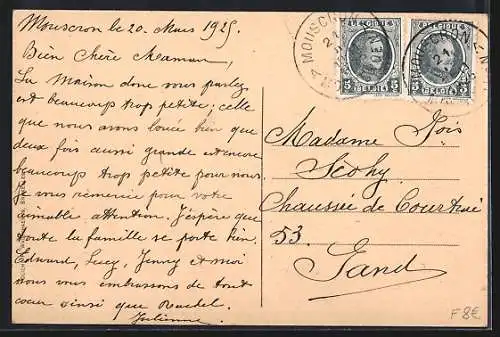 Mouscron le 20. Mars 1925.
Bien Chère Maman,
La Maison dont vous parlez
est beaucoup trop petite; celle
que nous avons louée bien que
deux fois aussi grande est encore
beaucoup trop petite pour nous.
Je vous remercie pour votre
aimable attention. J'espère que
toute la famille se porte bien.
Edward, Lucy, Jenny et moi
nous vous embrassons de tout
coeur ainsi que
Julienne.
MOUSCRON
BELGIQUE
5 BELGIË 5
MOUSCRON
BELGIQUE
5 BELGIË 5
Madame
Scohy
Chaussée de Courtrai
53.
Gand
F 8€